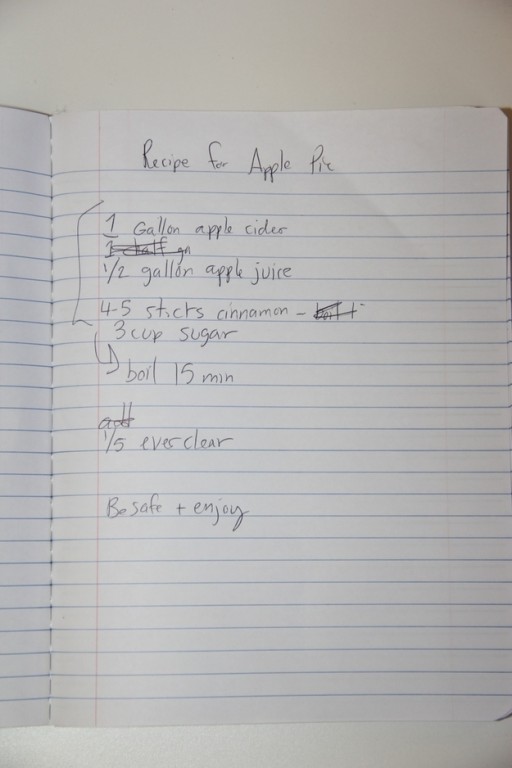 Recipe for Apple Pie
1 Gallon apple cider
1 half gn
1/2 gallon apple juice
4-5 sticks cinnamon - boil
3 cup sugar
boil 15 min
add
1/5 everclear
Be safe + enjoy